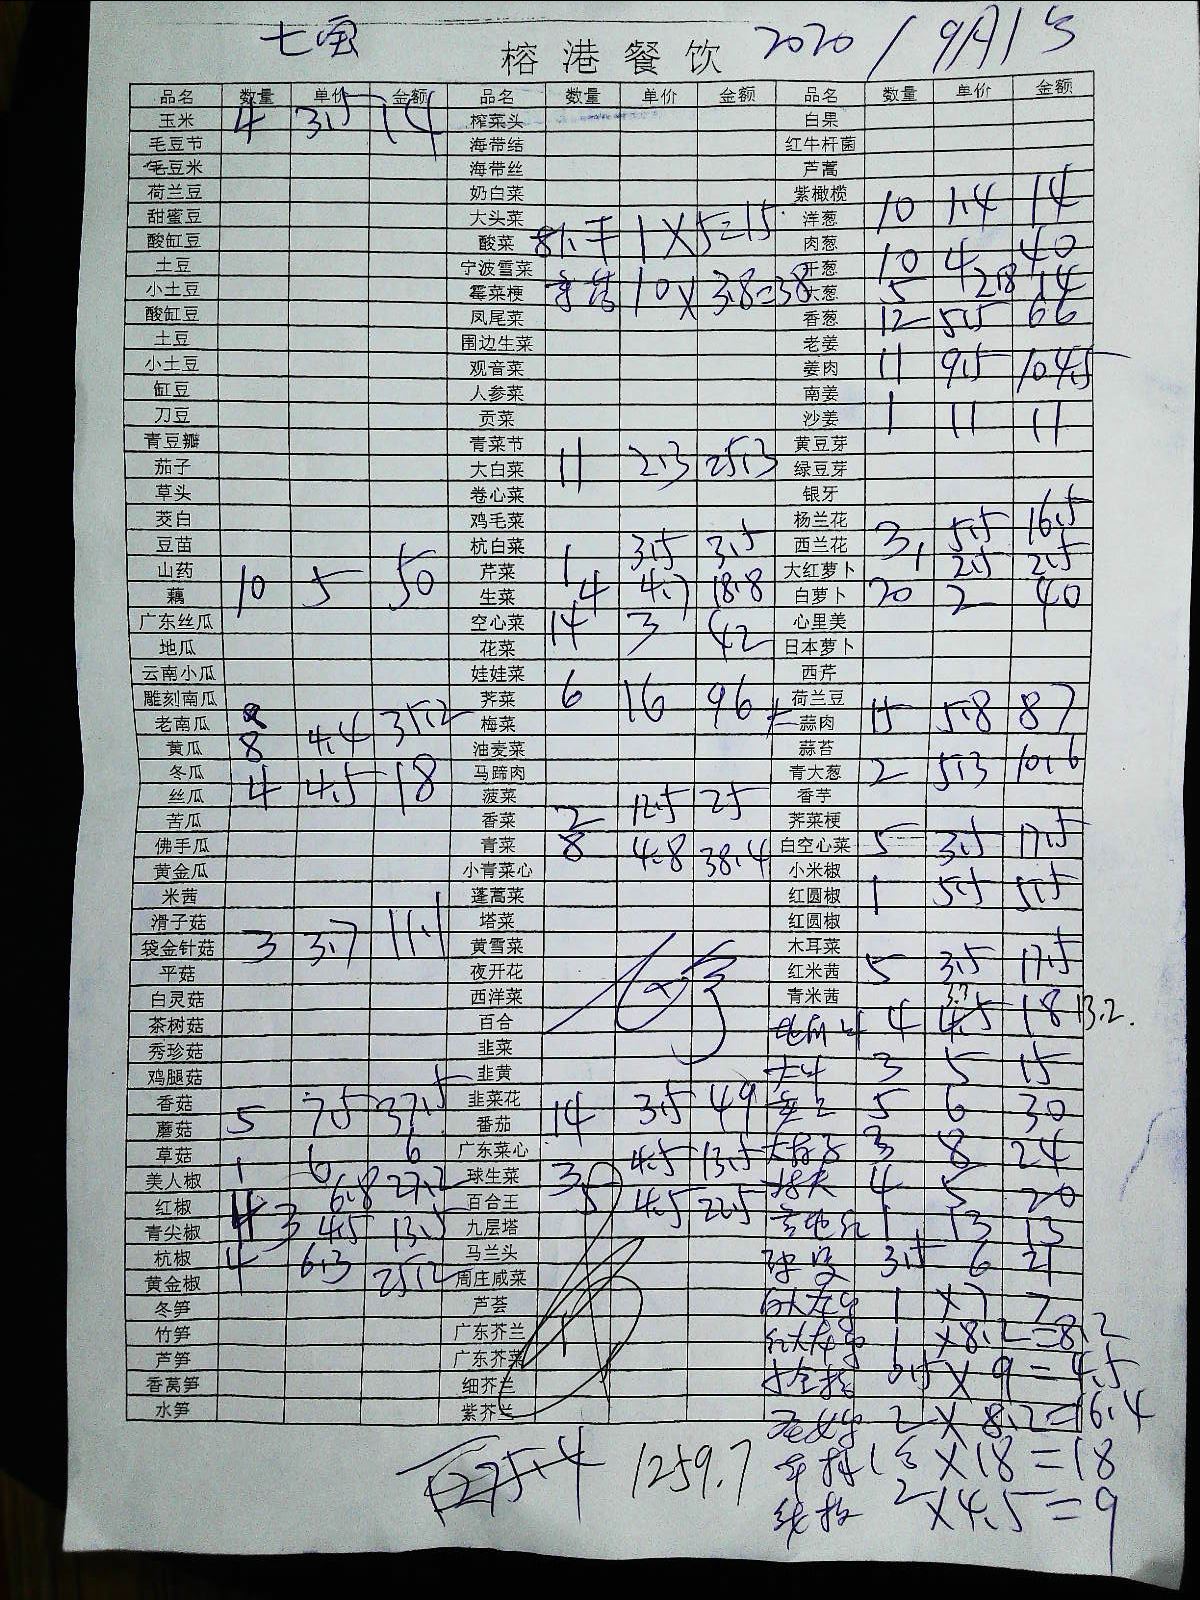 七宝 榕港餐饮 2020/9月1号
品名 数量 单价 金额 品名 数量 单价 金额 品名 数量 单价 金额
玉米 4 3.5 14 榨菜头 白果
毛豆节 海带结 红牛杆菌
毛豆米 海带丝 芦蒿
荷兰豆 奶白菜 紫橄榄
甜蜜豆 大头菜 洋葱 10 1.4 14
酸缸豆 酸菜 1X5=15 肉葱
土豆 宁波雪菜 开葱 10 4 40
小土豆 霉菜梗 10X3.8=38 大葱 5 2.8 14
酸缸豆 凤尾菜 香葱 12 5.5 66
土豆 围边生菜 老姜
小土豆 观音菜 姜肉 11 9.5 104.5
缸豆 人参菜 南姜
刀豆 贡菜 沙姜 1 11 11
青豆瓣 青菜节 黄豆芽
茄子 大白菜 11 2.3 25.3 绿豆芽
草头 卷心菜 银牙
茭白 鸡毛菜 杨兰花
豆苗 杭白菜 1 3.5 3.5 西兰花 3 5.5 16.5
山药 芹菜 大红萝卜 1 2.5 2.5
藕 10 5 50 生菜 4 4.7 18.8 白萝卜 20 2 40
广东丝瓜 空心菜 14 3 42 心里美
地瓜 花菜 日本萝卜
云南小瓜 娃娃菜 西芹
雕刻南瓜 荠菜 6 16 96 荷兰豆
老南瓜 梅菜 蒜肉 15 5.8 87
黄瓜 8 4.4 35.2 油麦菜 蒜苔
冬瓜 马蹄肉 青大葱 2 5.3 10.6
丝瓜 4 4.5 18 菠菜 香芋
苦瓜 香菜 2 12.5 25 荠菜梗
佛手瓜 青菜 8 4.8 38.4 白空心菜 5 3.5 17.5
黄金瓜 小青菜心 小米椒
米茜 蓬蒿菜 红圆椒 1 5.5 5.5
滑子菇 塔菜 红圆椒
袋金针菇 3 3.7 11.1 黄雪菜 木耳菜
平菇 夜开花 红米茜 5 3.5 17.5
白灵菇 西洋菜 青米茜
茶树菇 百合 4 4.5 3.3 18 13.2
秀珍菇 韭菜
鸡腿菇 韭黄 3 5 15
香菇 韭菜花 5 6 30
蘑菇 5 7.5 37.5 番茄 14 3.5 49
草菇 1 6 6 广东菜心 3 8 24
美人椒 球生菜 3 4.5 13.5 4 5 20
红椒 4 6.8 27.2 百合王 5 4.5 22.5
青尖椒 3 4.5 13.5 九层塔 1 13 13
杭椒 4 6.3 25.2 马兰头 3.5 6 21
黄金椒 周庄咸菜
冬笋 芦荟 1 X7 7
竹笋 广东芥兰 1 X8.2=8.2
芦笋 广东芥菜 0.5 X9=4.5
香莴笋 细芥兰
水笋 紫芥兰 2 X8.2=16.4
1275.4 1259.7 X18=18
2 X4.5=9